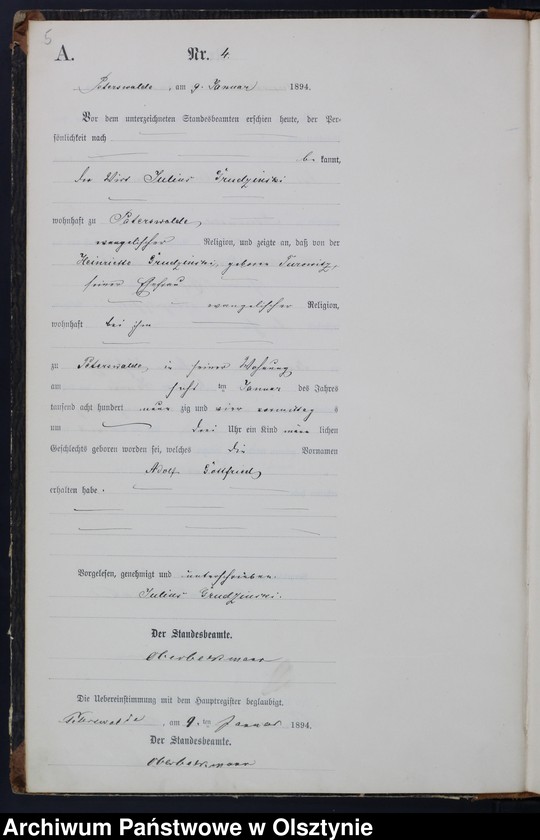 5
A.
Nr. 4
Peterswalde, am 9. Januar 1894.
Vor dem unterzeichneten Standesbeamten erschien heute, der Per-
sönlichkeit nach
be kannt,
der Wirt Julius Grudzinski
wohnhaft zu Peterswalde,
evangelischer Religion, und zeigte an, daß von der
Heinriette Grudzinski, geborene Turowitz,
seiner Ehefrau
evangelischer Religion,
wohnhaft bei ihm
zu Peterswalde, in seiner Wohnung,
am ten Januar des Jahres
tausend acht hundert neun zig und vier vormittag s
um drei Uhr ein Kind männ lichen
Geschlechts geboren worden sei, welches die Vornamen
Adolf Gottfried
erhalten habe.
Vorgelesen, genehmigt und unterschrieben.
Julius Grudzinski.
Der Standesbeamte.
Die Uebereinstimmung mit dem Hauptregister beglaubigt.
Peterswalde, am 9. ten Januar 1894.
Der Standesbeamte.
Archiwum Państwowe w Olsztynie